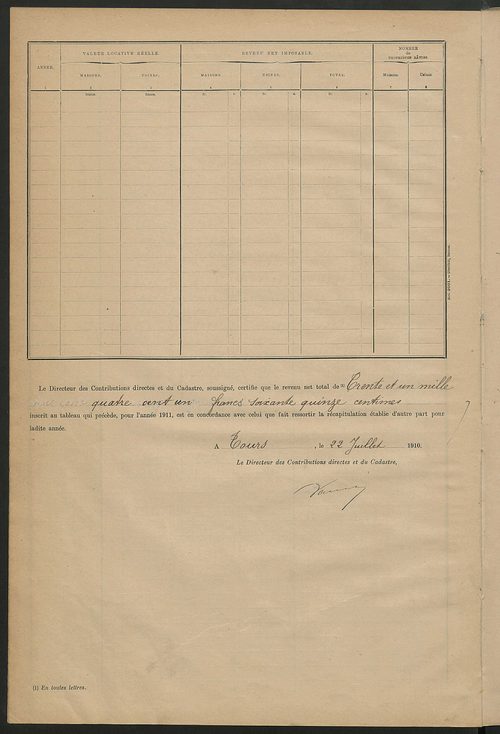 ANNÉE.
VALEUR LOCATIVE RÉELLE.
REVENU NET IMPOSABLE.
NOMBRE
de
PROPRIÉTÉS BÂTIES.
MAISONS.
USINES.
MAISONS.
USINES.
TOTAL.
Maisons.
Usines.
1 2 3 4 5 6 7 8
francs. francs. fr. c. fr. c. fr. c.
Le Directeur des Contributions directes et du Cadastre, soussigné, certifie que le revenu net total de (1) Trente et un mille
quatre cent un francs soixante quinze centimes
inscrit au tableau qui précède, pour l'année 1911, est en concordance avec celui que fait ressortir la récapitulation établie d'autre part pour
ladite année.
A Tours, le 22 Juillet 1910.
Le Directeur des Contributions directes et du Cadastre,
(1) En toutes lettres.